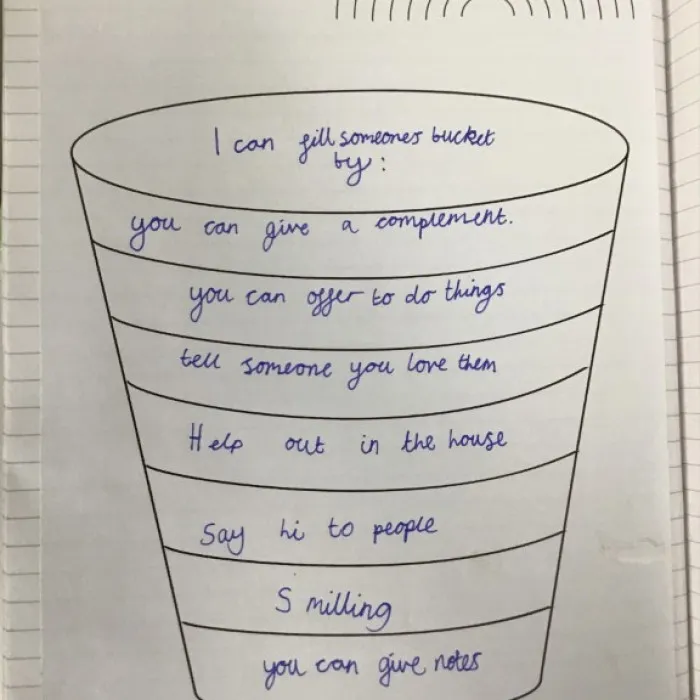 I can fill someones bucket
by:
you can give a complement.
you can offer to do things
tell someone you love them
Help out in the house
Say hi to people
Smilling
you can give notes